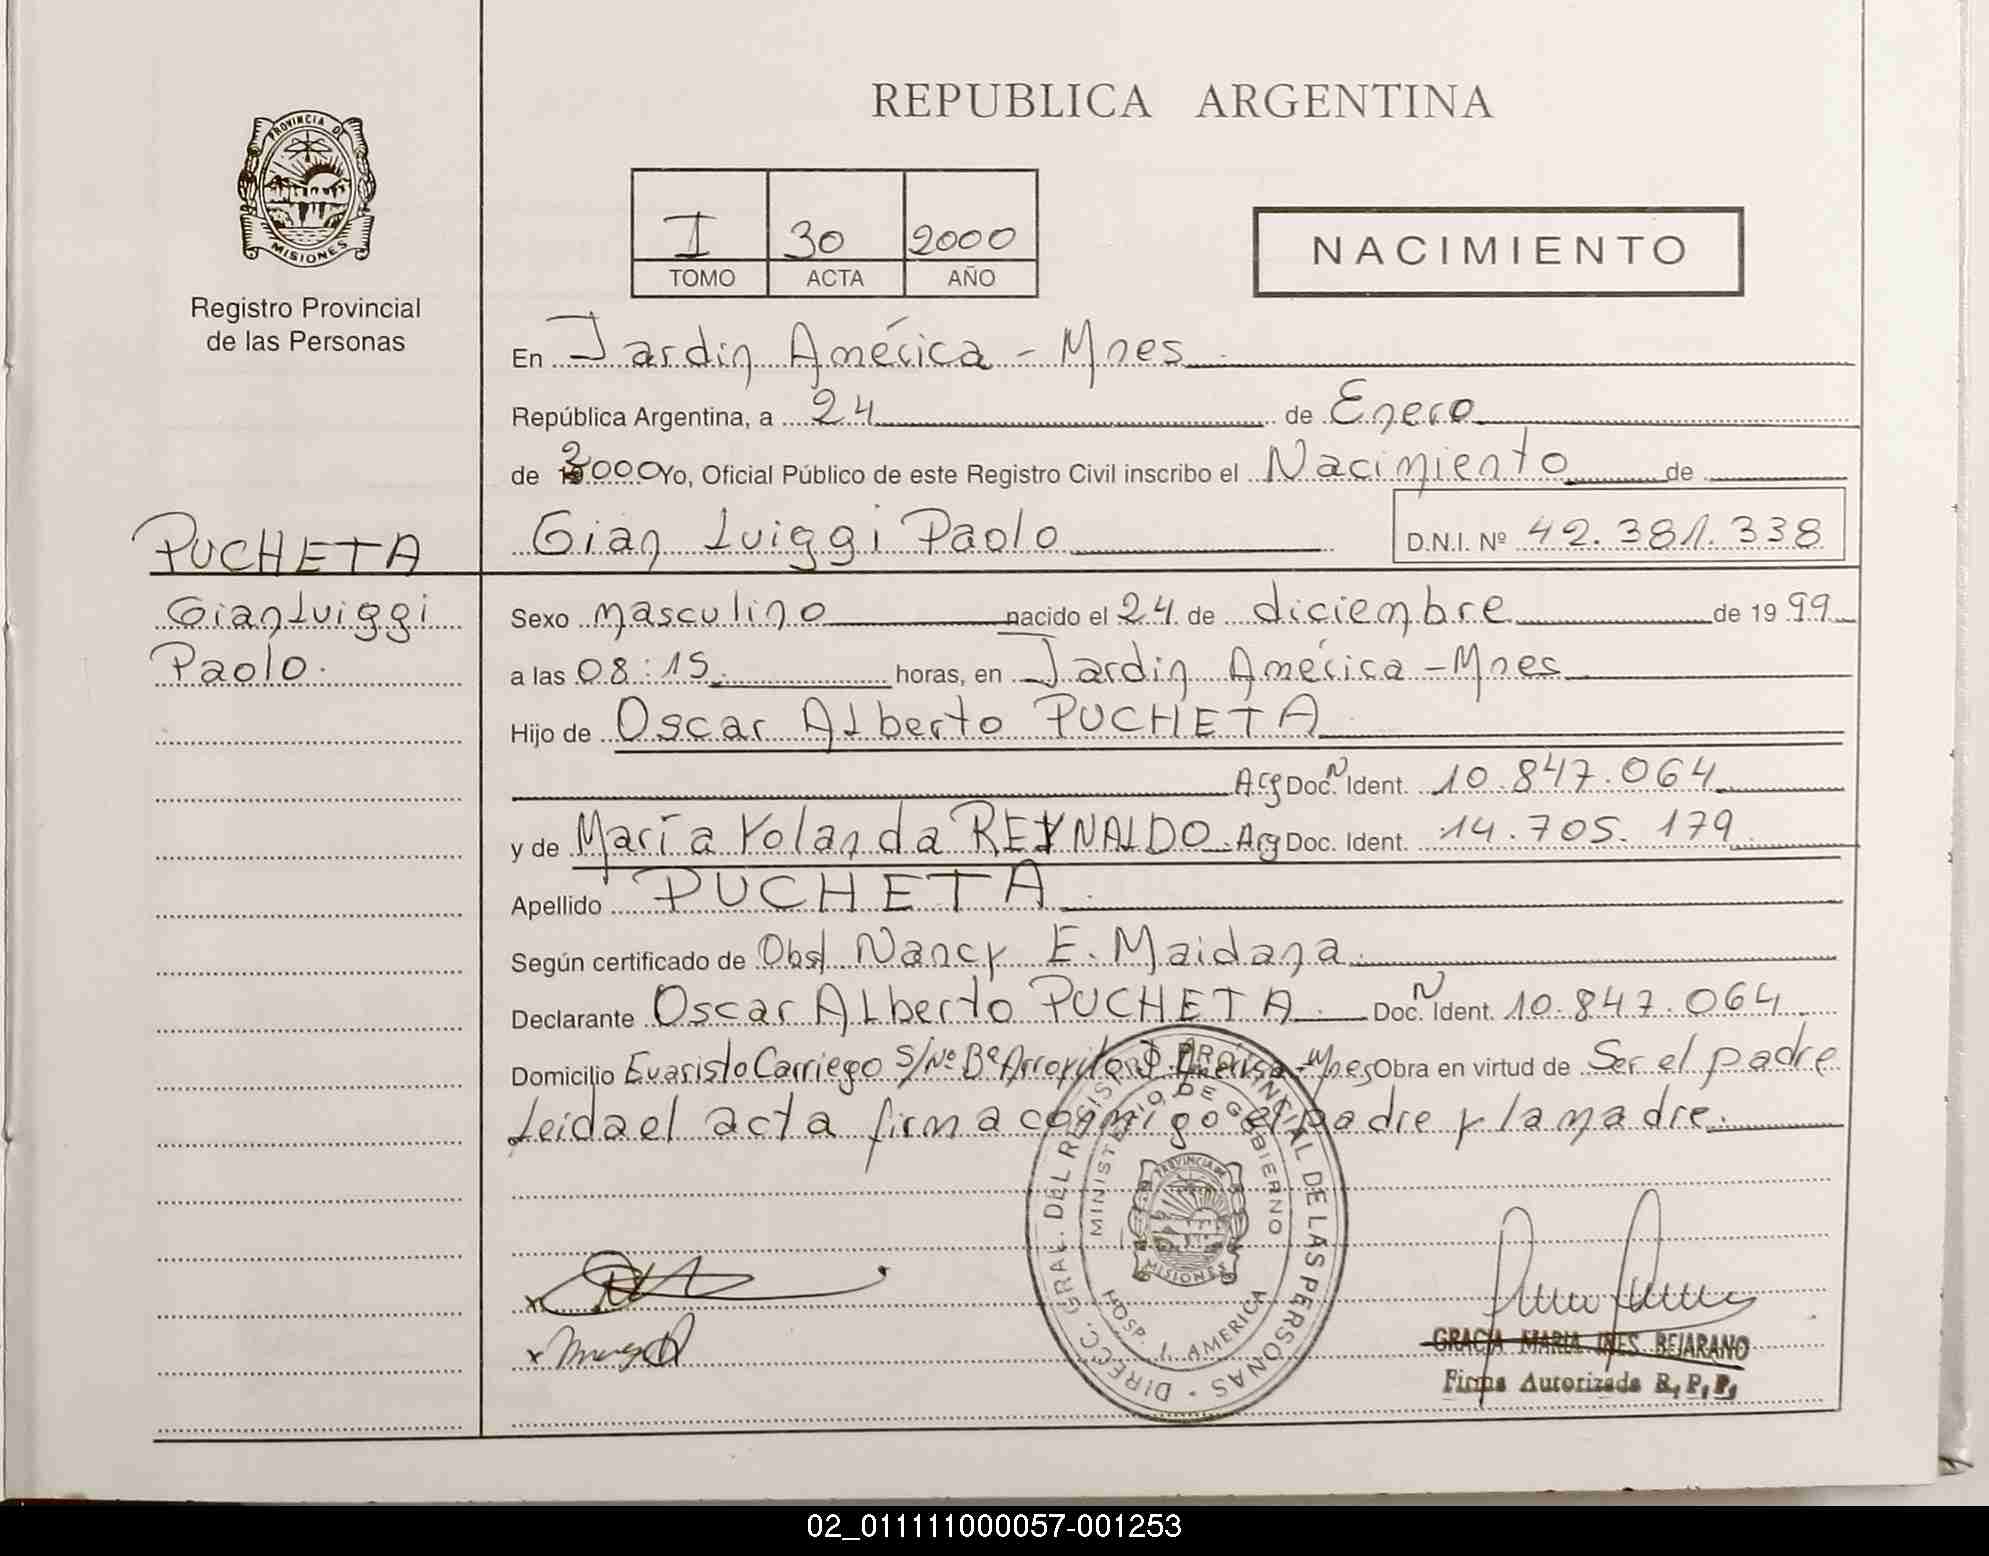 REPUBLICA ARGENTINA
PROVINCIA DE
MISIONES
Registro Provincial
de las Personas
I 30 2000
TOMO ACTA AÑO
NACIMIENTO
En Jardin América - Mnes
República Argentina, a 24 de Enero
de 2000 Yo, Oficial Público de este Registro Civil inscribo el Nacimiento de
PUCHETA
Gian Luiggi Paolo D.N.I. Nº 42.381.338
Gian Luiggi
Paolo.
Sexo masculino nacido el 24 de diciembre de 1999
a las 08:15 horas, en Jardin América - Mnes
Hijo de Oscar Alberto PUCHETA
Arg Doc. N Ident. 10.847.064
y de María Yolanda REYNALDO. Arg Doc. Ident. 14.705.179
Apellido PUCHETA
Según certificado de Obst Nancy E. Maidana
Declarante Oscar Alberto PUCHETA. Doc. N Ident. 10.847.064
Domicilio Evaristo Carriego S/Nº Bº Arroyito J. América - Mnes Obra en virtud de Ser el padre
Leida el acta firma conmigo el padre y la madre.
DIRECC. GRAL. DEL REGISTRO PROVINCIAL DE LAS PERSONAS
MINISTERIO DE GOBIERNO
PROVINCIA DE
MISIONES
HOSP. J. AMERICA
x
x
GRACIA MARIA INES BEJARANO
Firma Autorizada R.P.P.
02_011111000057-001253